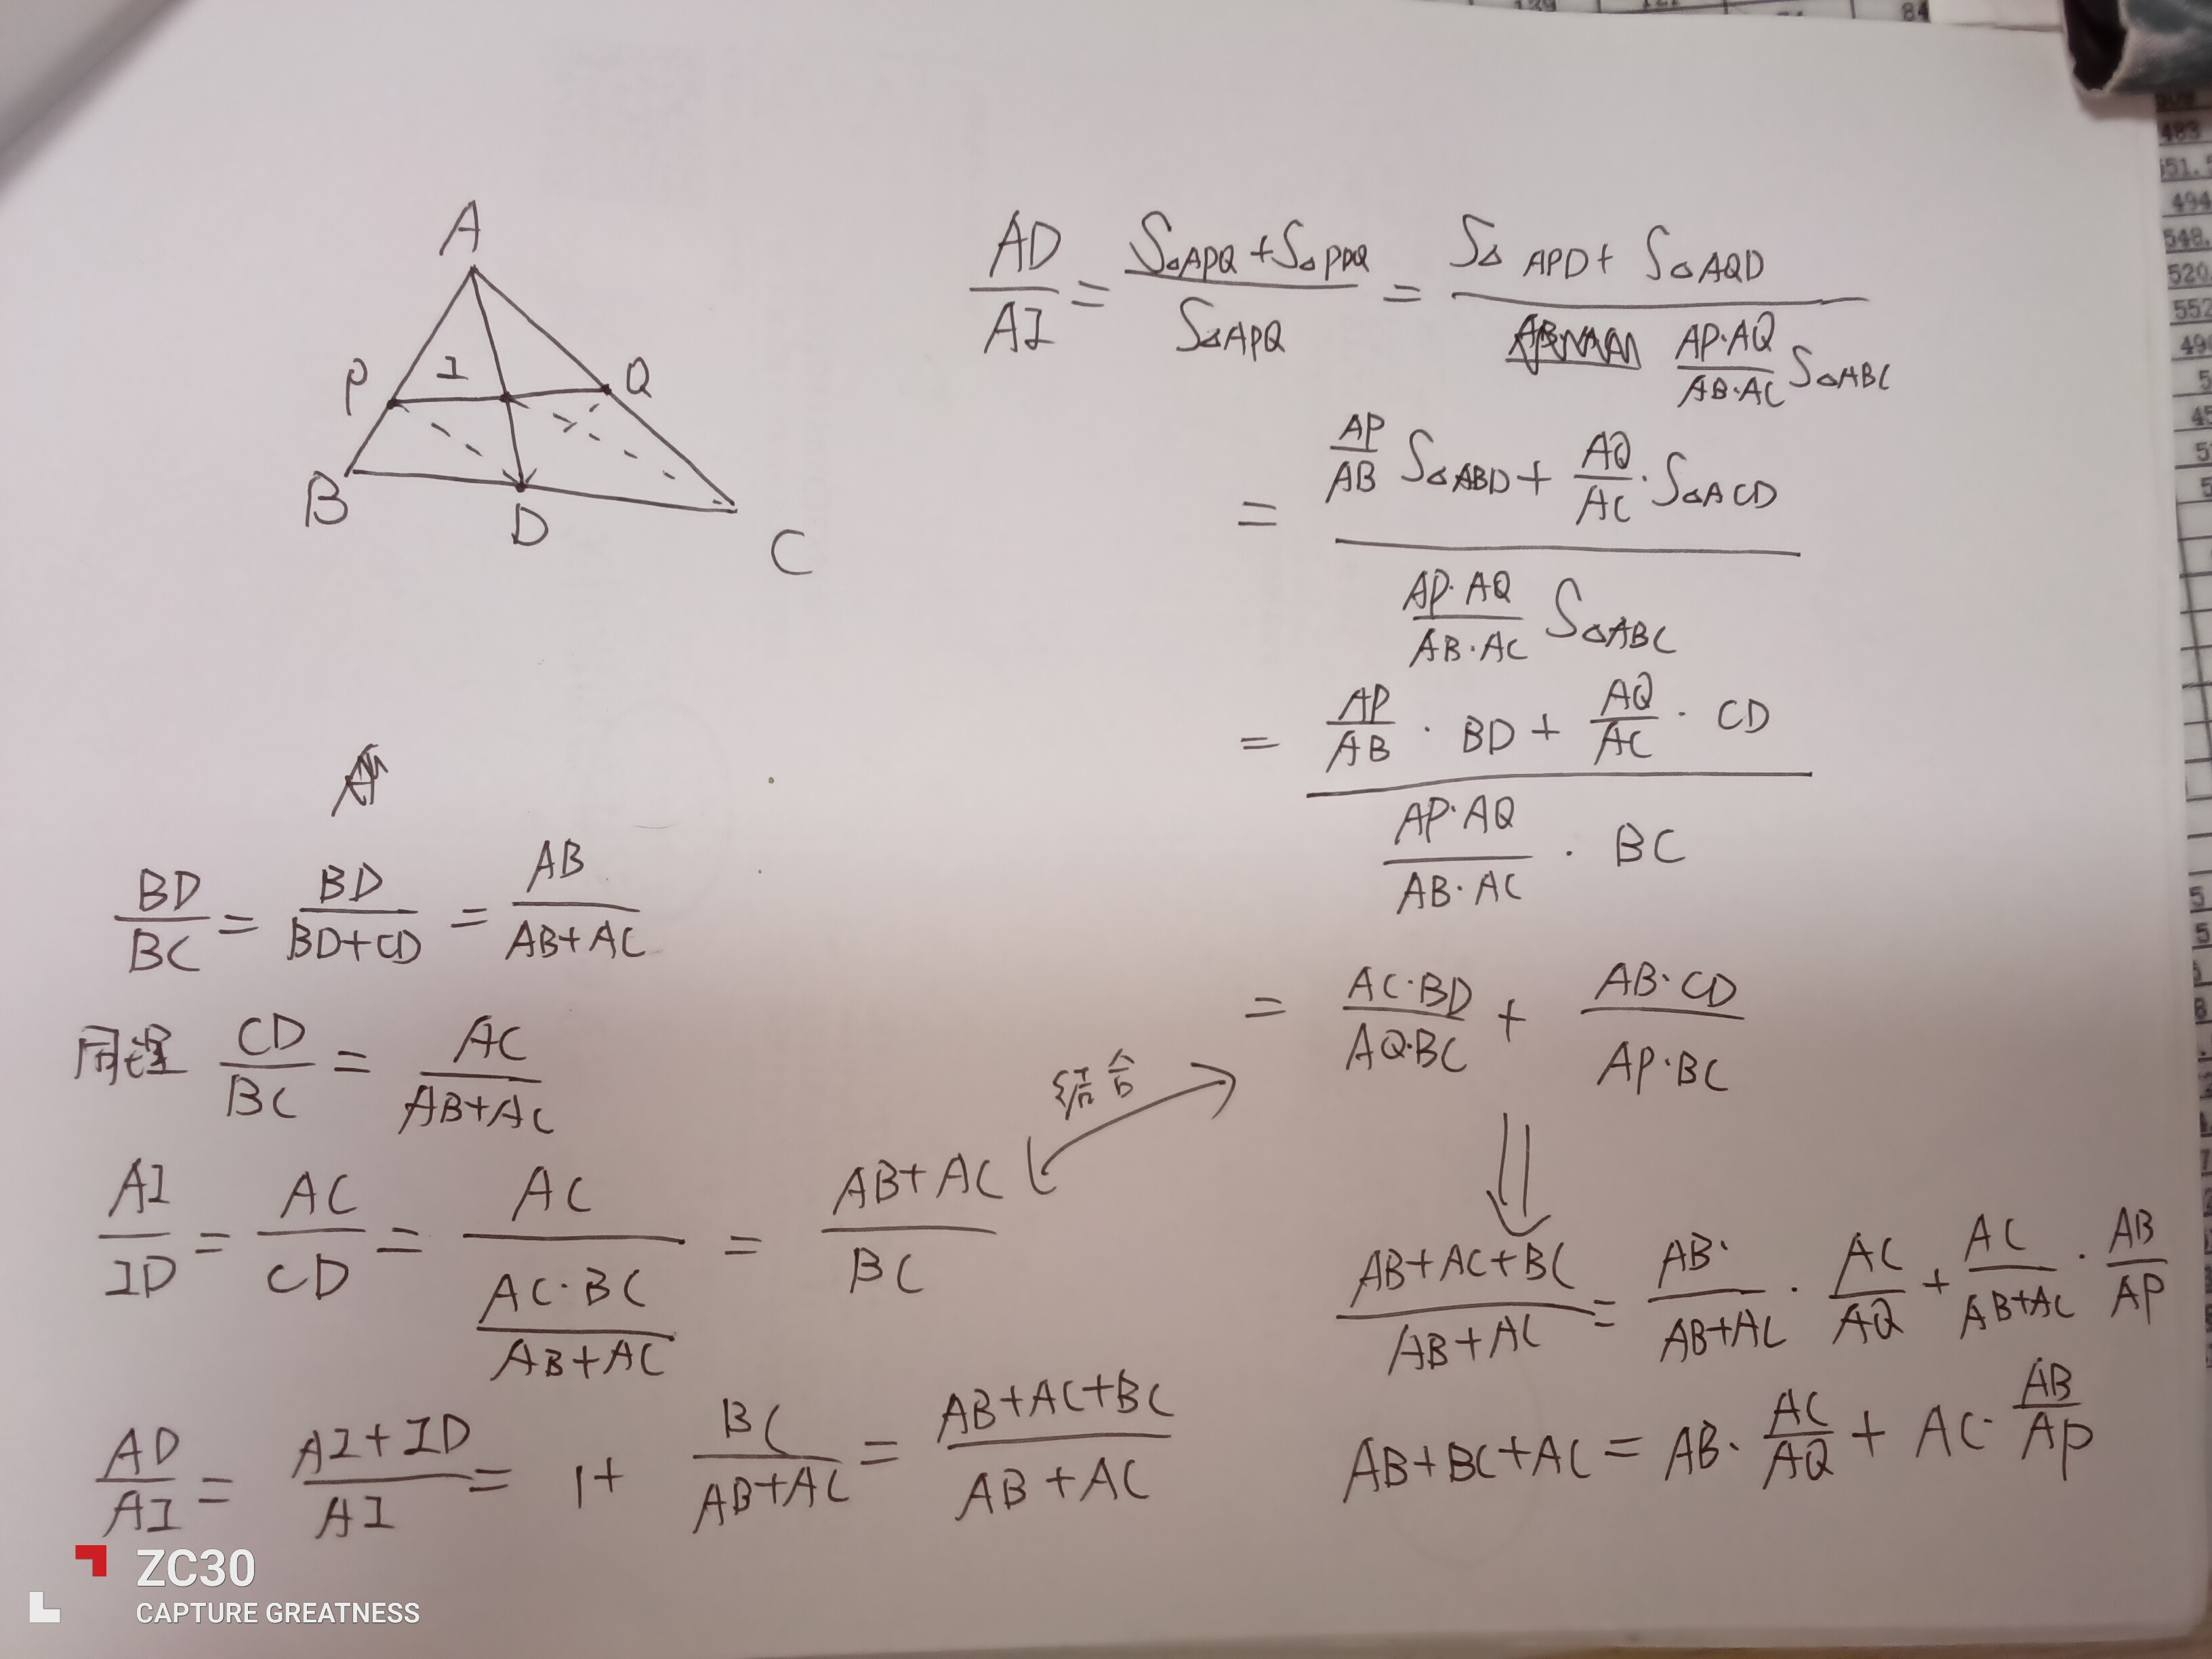 A
P
I
Q
B
D
C
AD/AI = (S△APQ + S△PDQ)/S△APQ = (S△APD + S△AQD)/((AP·AQ)/(AB·AC) S△ABC)
= (AP/AB S△ABD + AQ/AC · S△ACD)/((AP·AQ)/(AB·AC) S△ABC)
= (AP/AB · BD + AQ/AC · CD)/((AP·AQ)/(AB·AC) · BC)
= (AC·BD)/(AQ·BC) + (AB·CD)/(AP·BC)
BD/BC = BD/(BD+CD) = AB/(AB+AC)
同理 CD/BC = AC/(AB+AC)
AI/ID = AC/CD = AC/((AC·BC)/(AB+AC)) = (AB+AC)/BC
结合
AD/AI = (AI+ID)/AI = 1+ BC/(AB+AC) = (AB+AC+BC)/(AB+AC)
(AB+AC+BC)/(AB+AC) = AB·/(AB+AC) · AC/AQ + AC/(AB+AC) · AB/AP
AB+BC+AC = AB· AC/AQ + AC· AB/AP
ZC30
CAPTURE GREATNESS
84
483
494
548.
520.
552